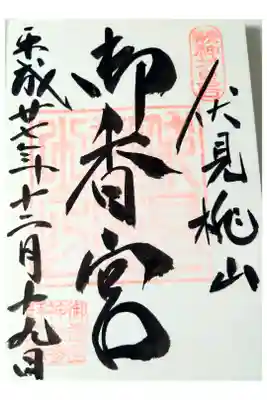 伏見桃山
御香宮
平成廿七年十二月十九日